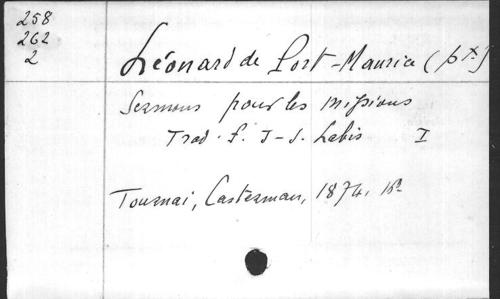 258
262
2
Léonard de Port-Maurice (St)
Sermons pour les missions
Trad. f. J-J. Labis I
Tournai, Casterman, 1874,